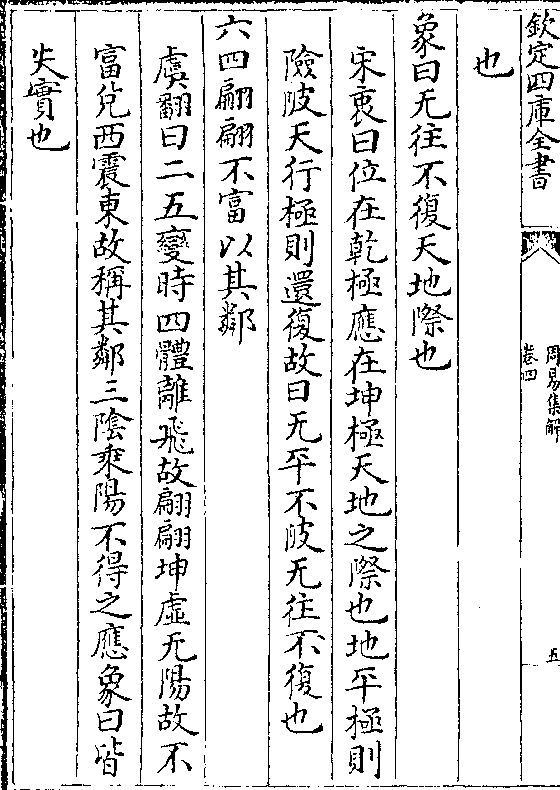 欽定四庫全書
周易集解
卷四
五
也
象曰无往不復天地際也
宋衷曰位在乾極應在坤極天地之際也地平極則
險陂天行極則還復故曰无平不陂无往不復也
六四翩翩不富以其鄰
虞翻曰二五變時四體離飛故翩翩坤虛无陽故不
富兌西震東故稱其鄰三陰乘陽不得之應象曰皆
失實也